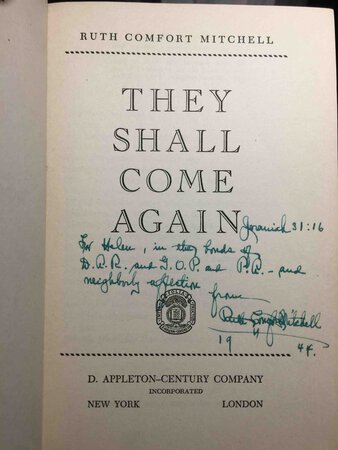 RUTH COMFORT MITCHELL
THEY
SHALL
COME
AGAIN
Jeremiah 31:16
For Helen, in the bonds of
D.A.R. and G.O.P. and P.R. - and
neighborly affection
from
Ruth Comfort Mitchell
19 44.
D. APPLETON-CENTURY COMPANY
INCORPORATED
NEW YORK LONDON